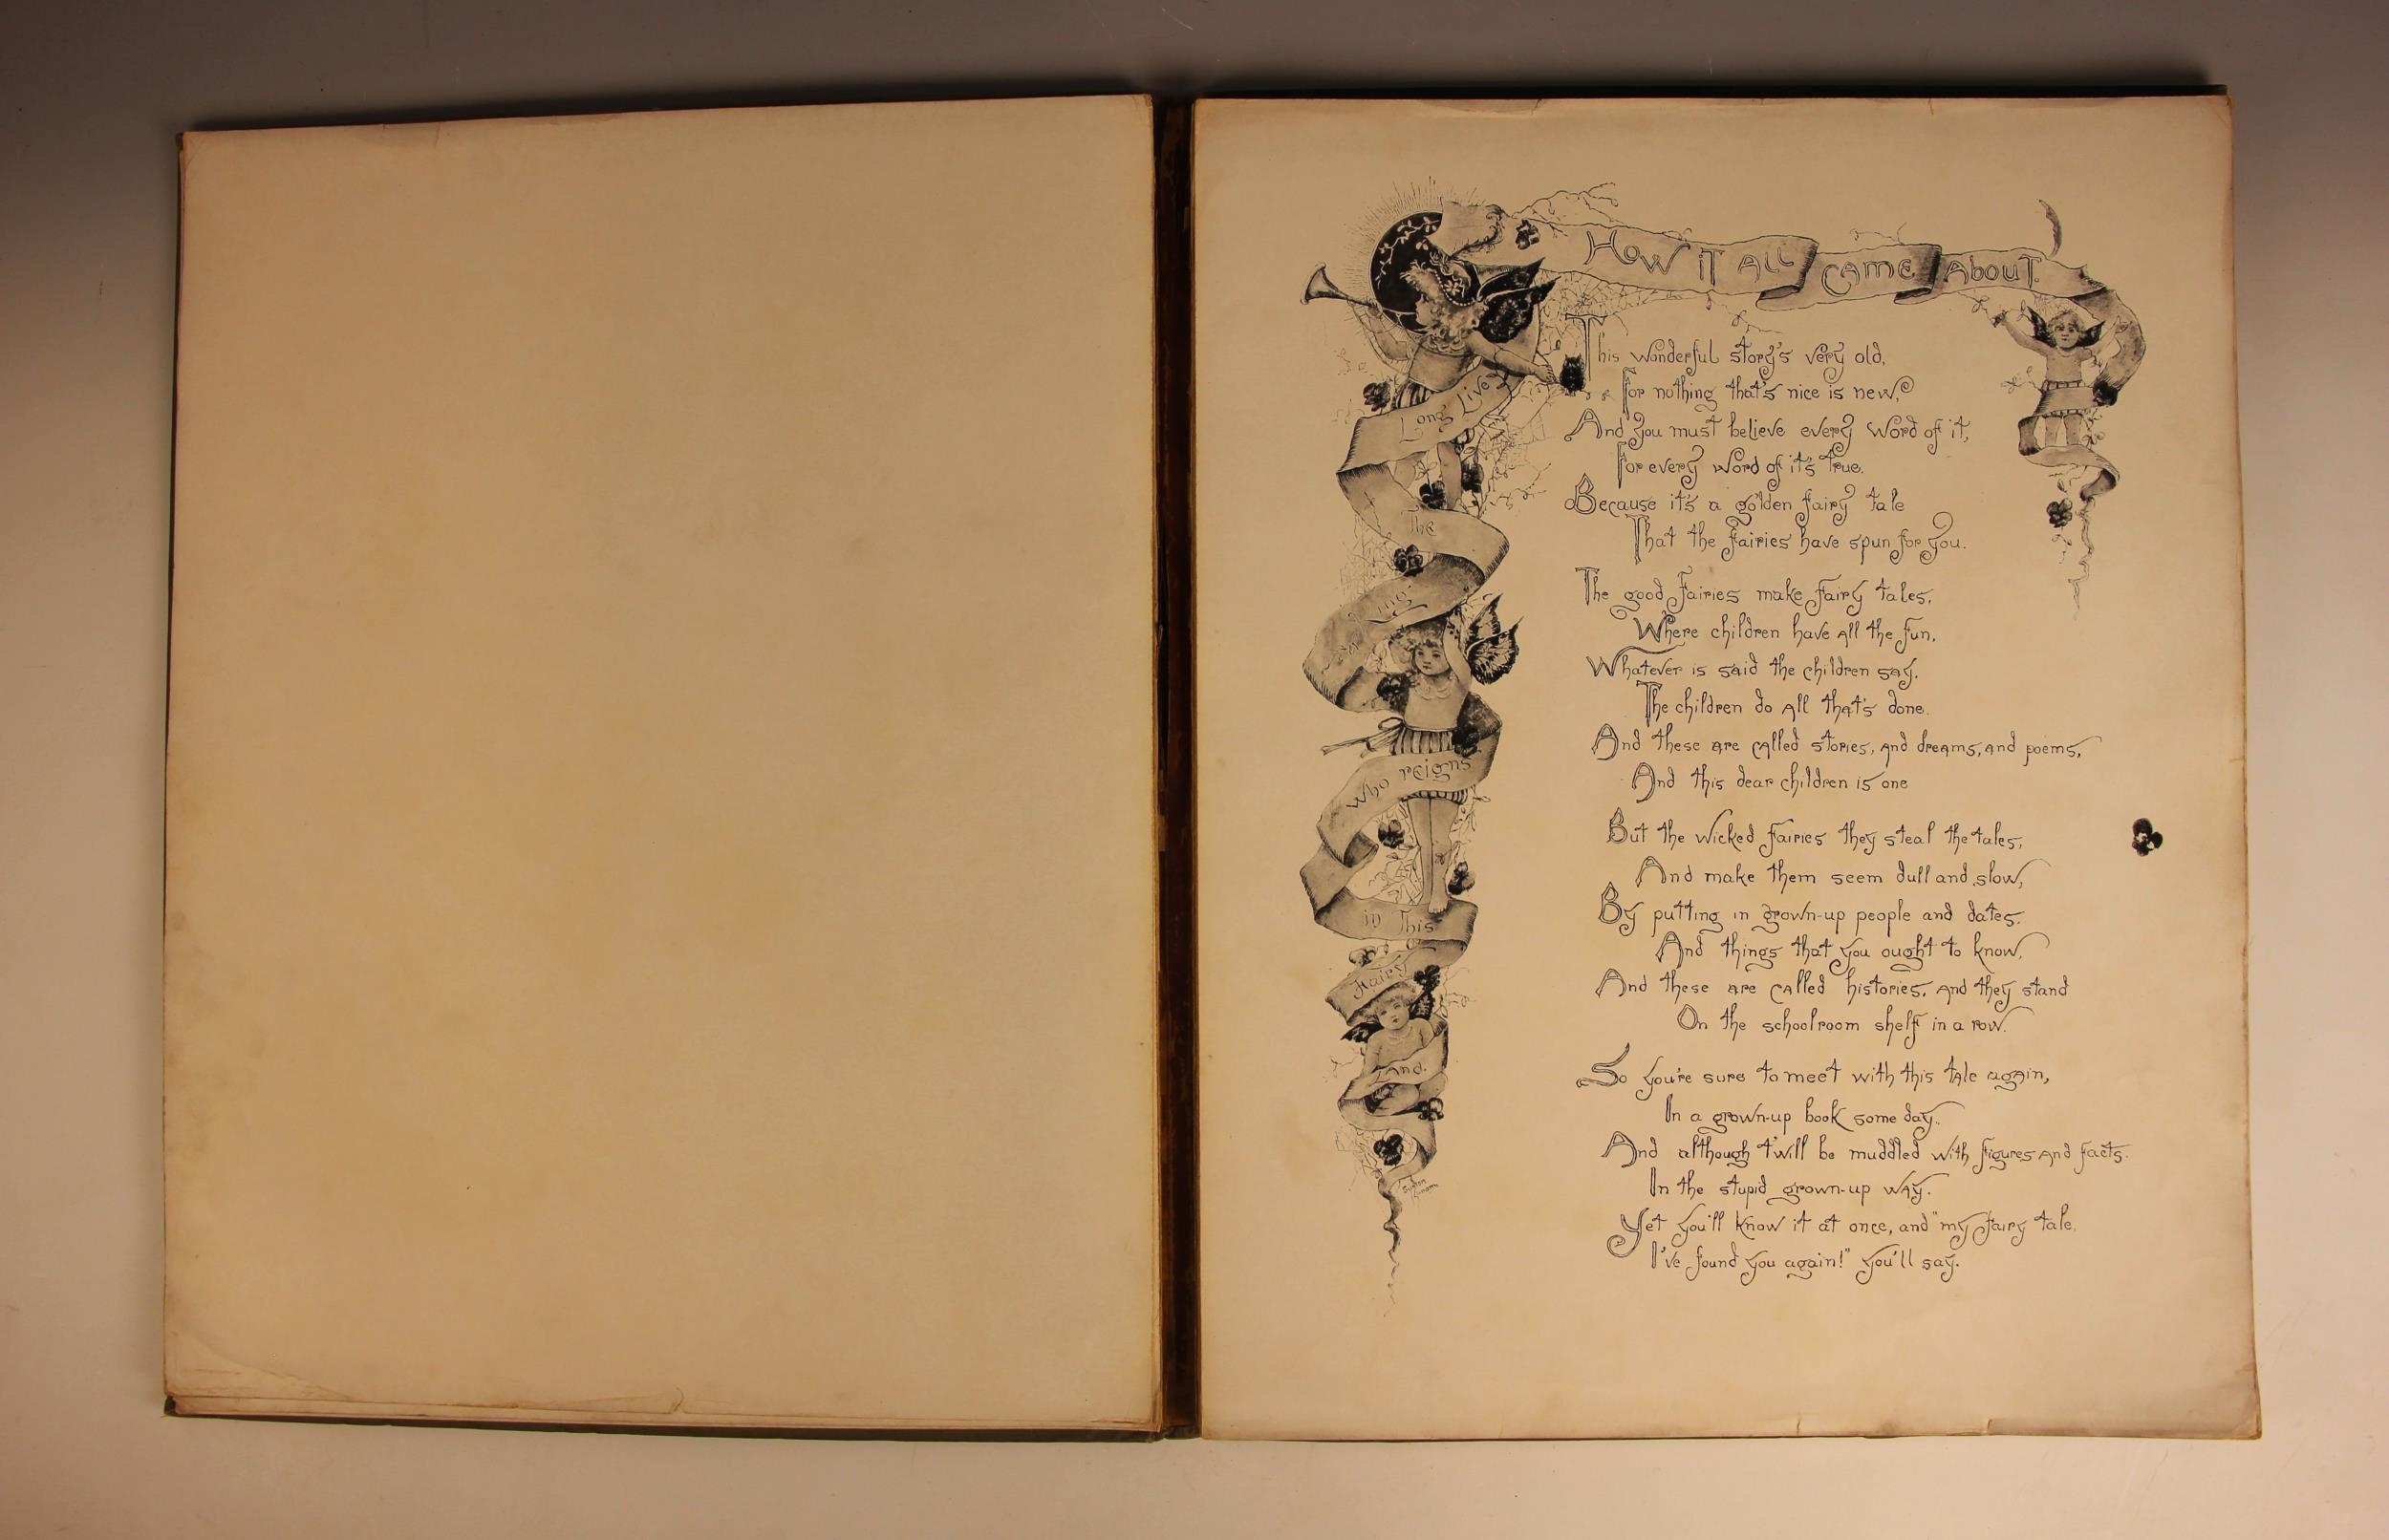 How it all came about.
Long Live
The
King
who reigns
in This
Fairy
Land.
This wonderful story's very old,
For nothing that's nice is new,
And you must believe every word of it,
For every word of it's true.
Because it's a golden fairy tale
That the fairies have spun for you.
The good Fairies make Fairy tales,
Where children have all the fun,
Whatever is said the children say.
The children do all that's done.
And these are called stories, and dreams, and poems,
And this dear children is one
But the wicked Fairies they steal the tales,
And make them seem dull and slow,
By putting in grown-up people and dates,
And things that you ought to know,
And these are called histories, and they stand
On the schoolroom shelf in a row.
So you're sure to meet with this tale again,
In a grown-up book some day,
And although t'will be muddled with figures and facts.
In the stupid grown-up way.
Yet you'll know it at once, and "my fairy tale.
I've found you again!" you'll say.